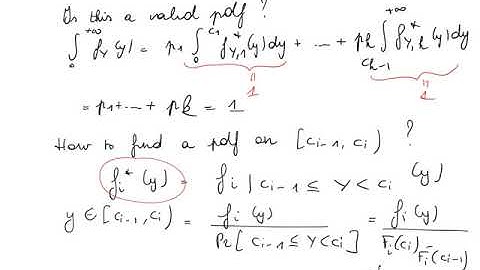 Is this a valid pdf ?
∫₀^{+∞} f_Y(y) = p₁ ∫₀^{c₁} f*_{Y,1}(y)dy + ... + pk ∫_{ck-1}^{+∞} f*_{Y,k}(y)dy
" "
1 1
= p₁+...+ pk = 1
How to find a pdf on [ci-1, ci) ?
fi*(y) = fi | ci-1 ≤ Y < ci (y)
y ∈ [ci-1, ci) = fi(y) / Pr[ci-1 ≤ Y < ci] = fi(y) / Fi(ci) - Fi(ci-1)